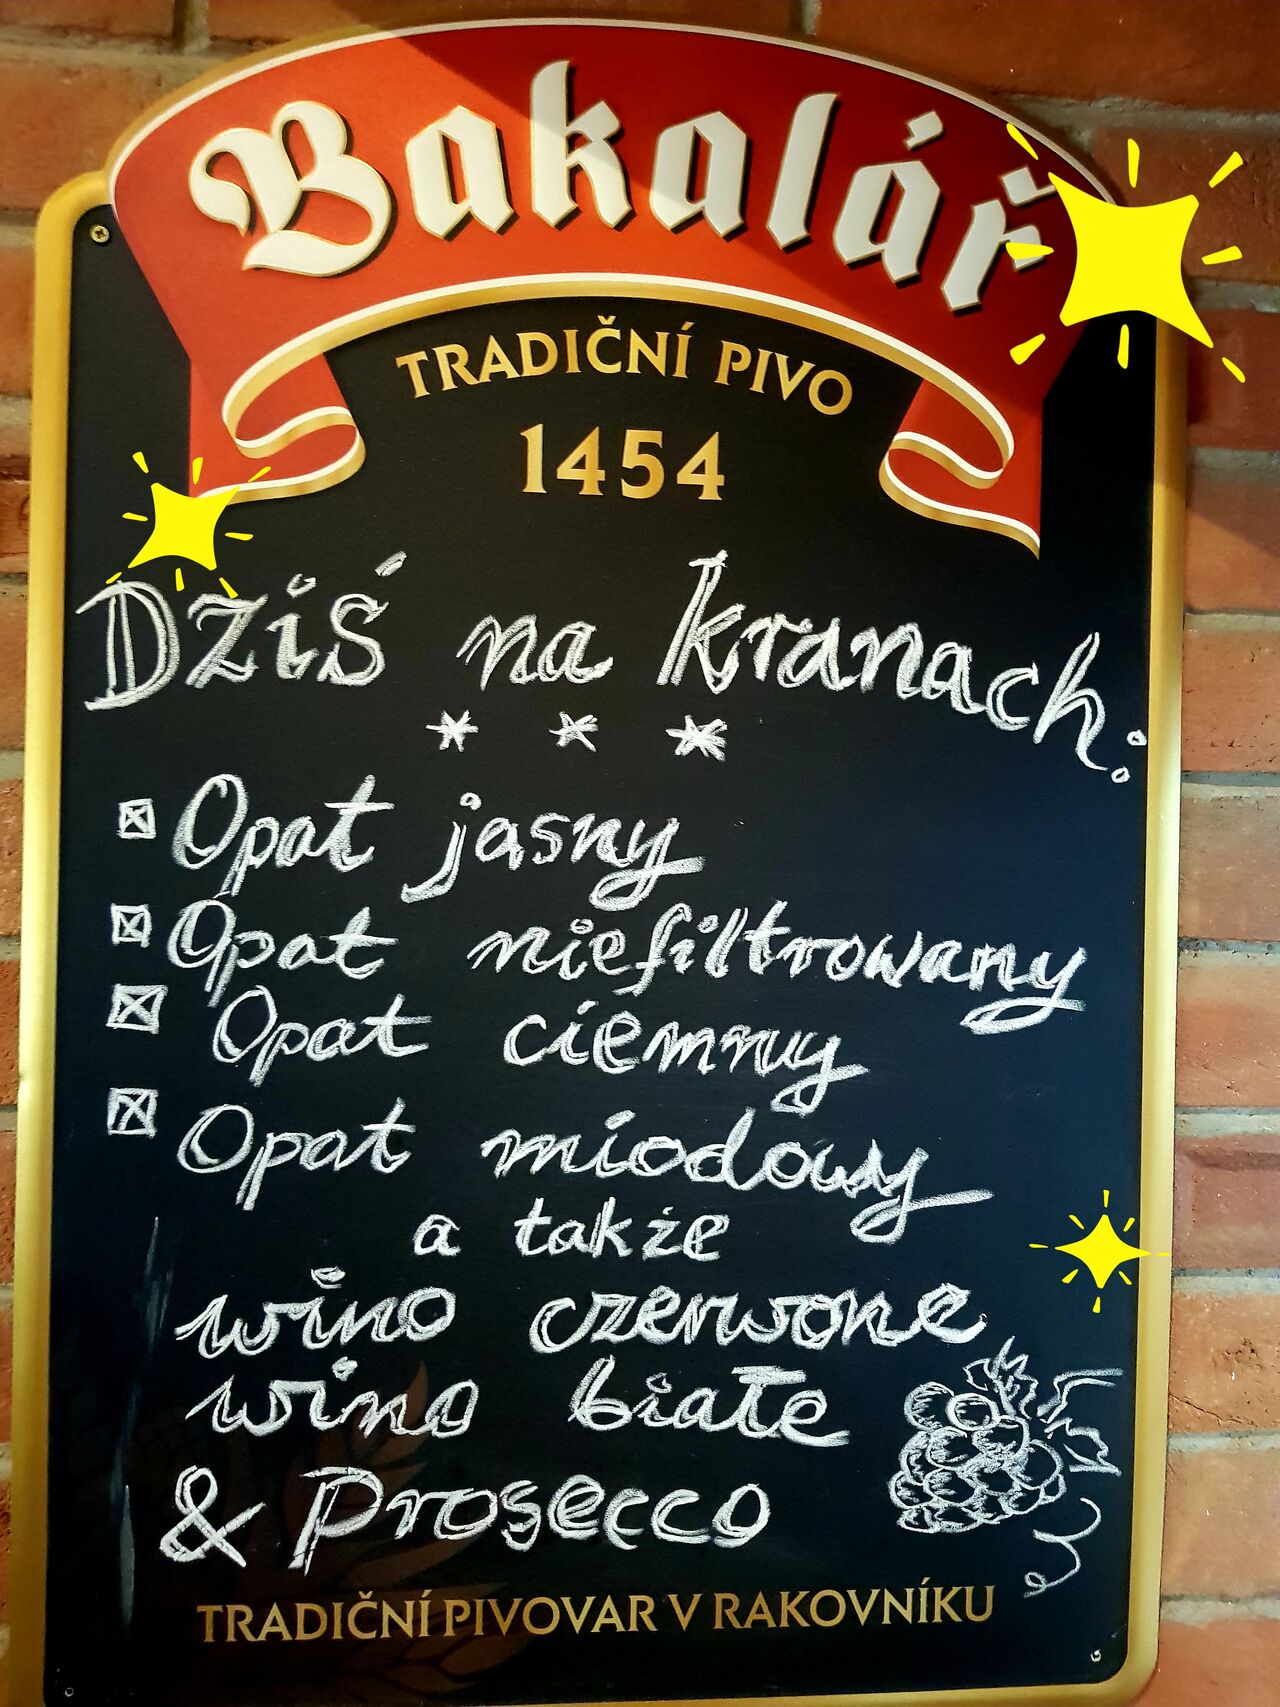 Bakalář
TRADIČNÍ PIVO
1454
Dziś na kranach:
* * *
Opat jasny
Opat niefiltrowany
Opat ciemny
Opat miodowy
a także
wino czerwone
wino białe
& Prosecco
TRADIČNÍ PIVOVAR V RAKOVNÍKU